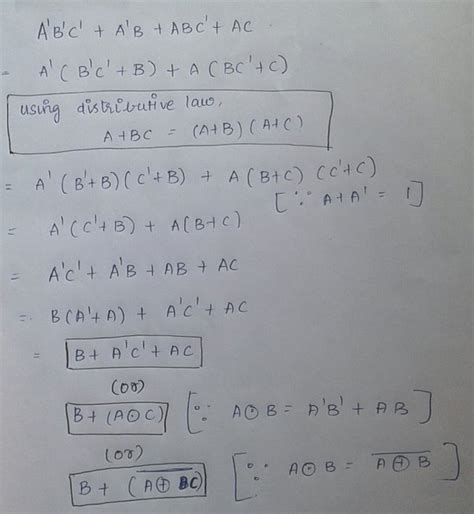 A'B'C' + A'B + ABC' + AC
= A'(B'C' + B) + A(BC' + C)
using distributive law,
A+BC = (A+B)(A+C)
= A'(B'+B)(C'+B) + A(B+C)(C'+C)
[∵ A+A' = 1]
= A'(C'+B) + A(B+C)
= A'C' + A'B + AB + AC
= B(A'+A) + A'C' + AC
= B + A'C' + AC
(or)
B + (A⊙C) [∵ A⊙B = A'B' + AB]
(or)
B + (A̅ ̅⊕̅ ̅C̅) [∵ A⊙B = A̅ ̅⊕̅ ̅B̅]